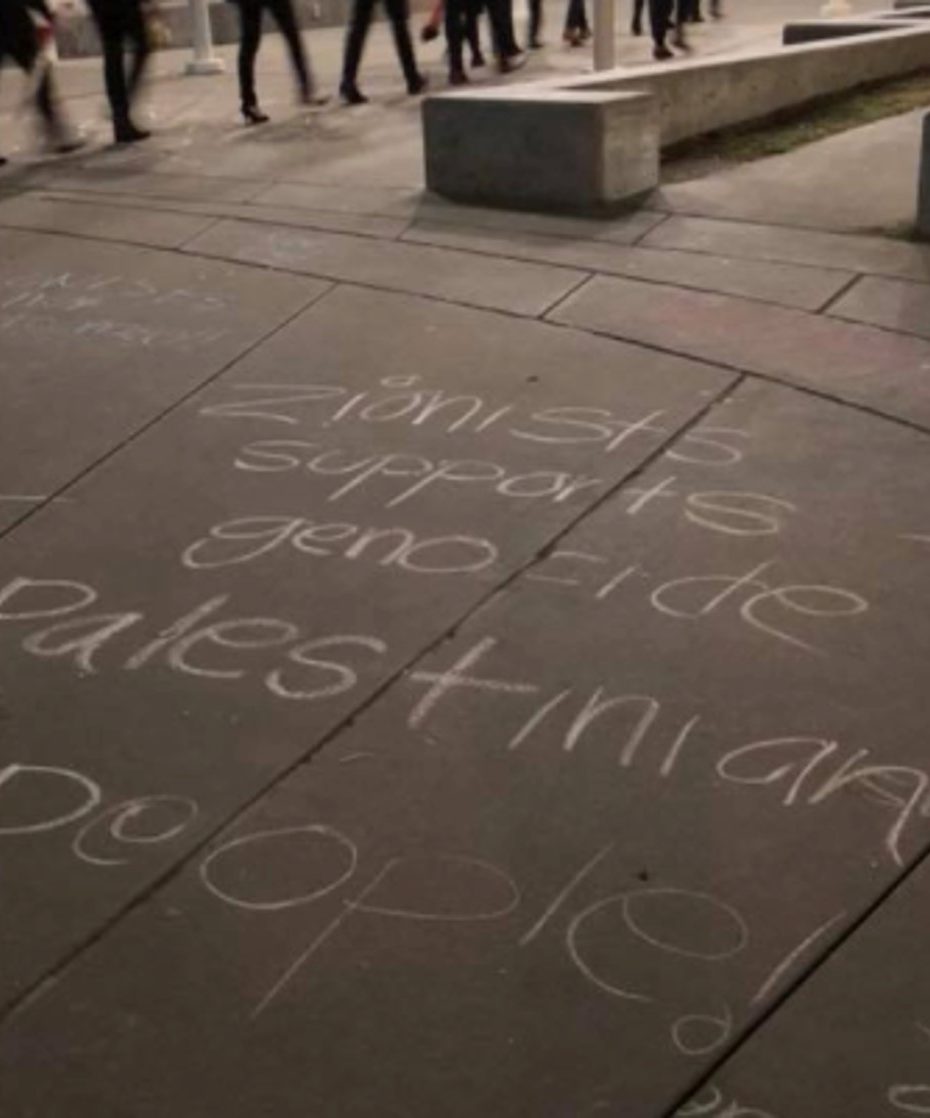 Zionists
supports
genocide
Palestinian
People!